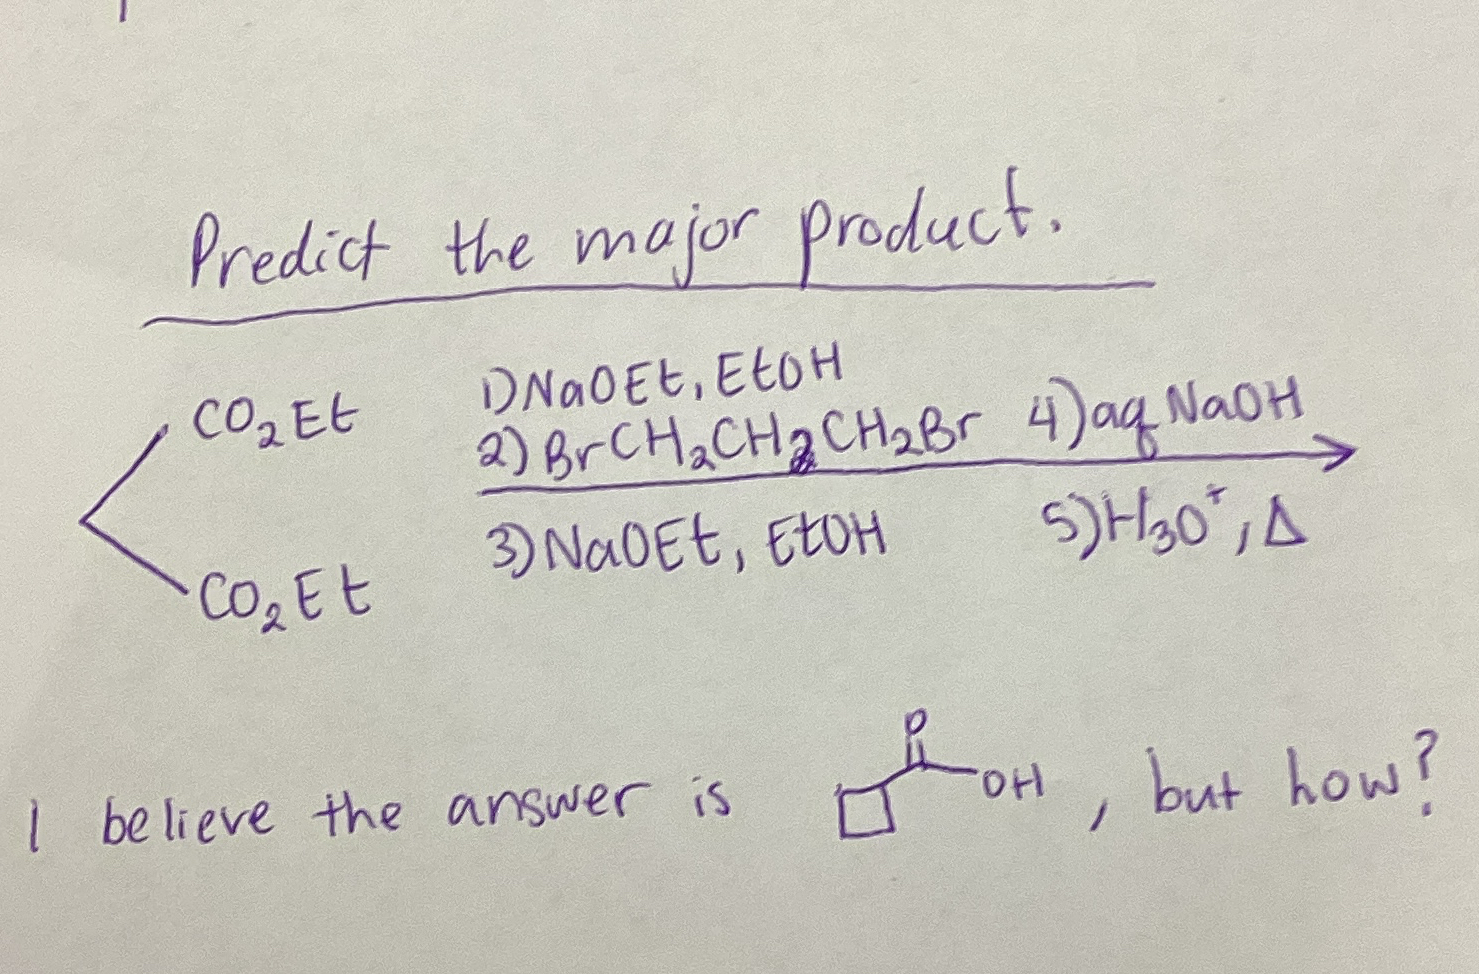 Predict the major product.
CO₂Et
1) NaOEt, EtOH
2) BrCH₂CH₂CH₂Br 4) aq NaOH
3) NaOEt, EtOH 5) H₃O⁺, Δ
CO₂Et
O
OH
I believe the answer is , but how?